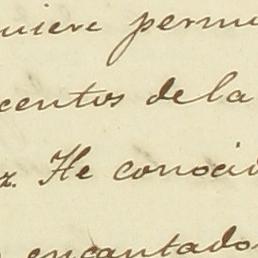 uiere permi
centos de la
z. He conocid
encantados